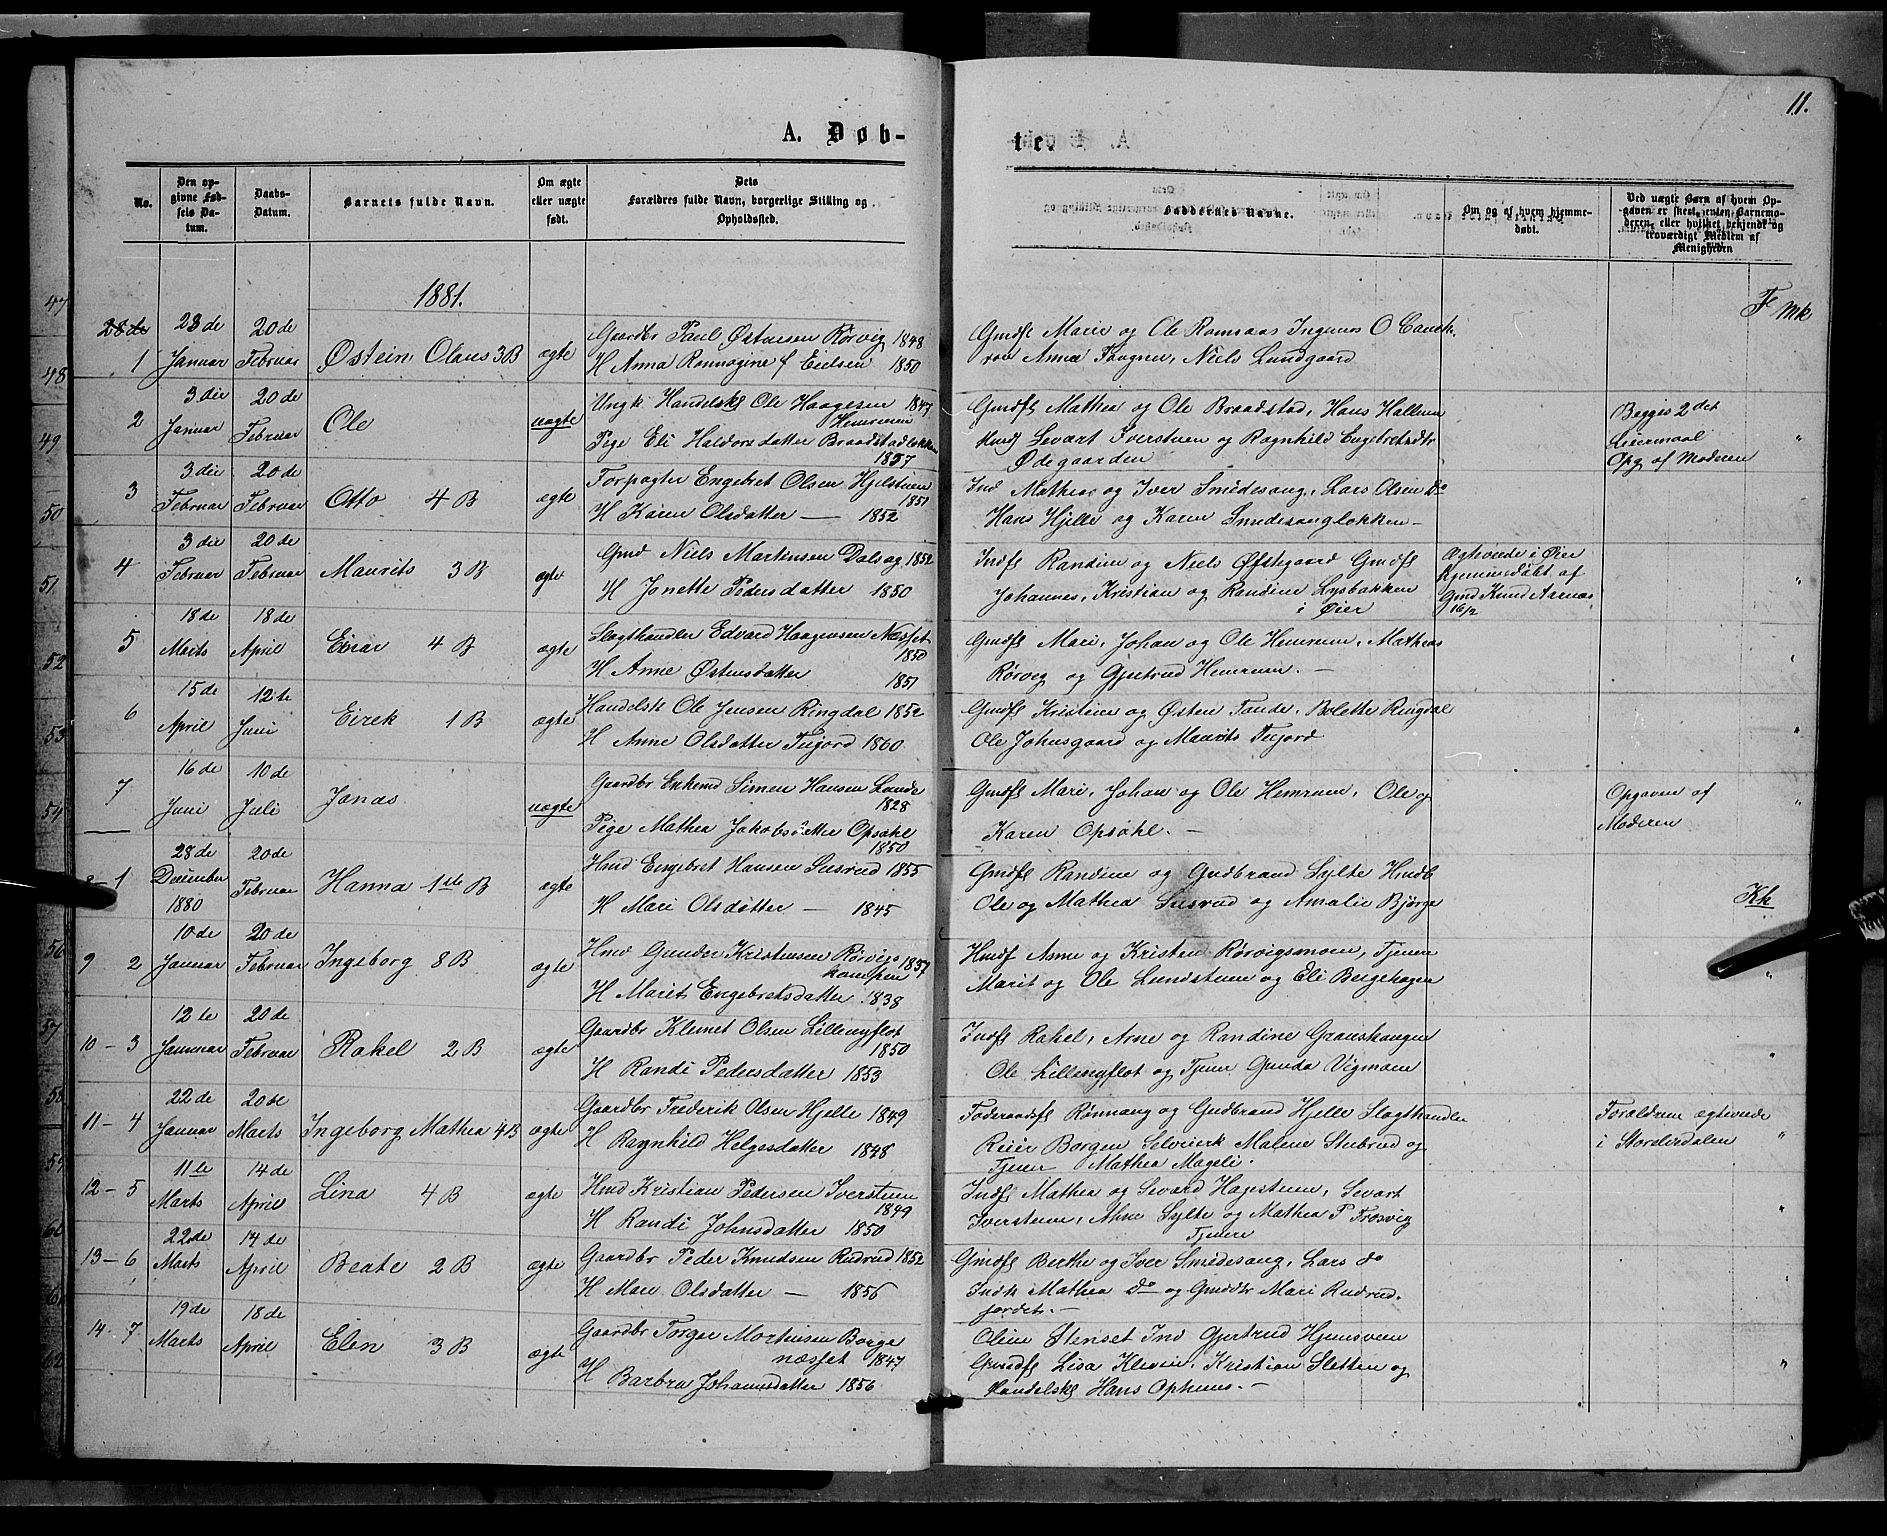 11.
A. Døb-
te.
No.
Den op-
givne Fød-
sels Da-
tum.
Daabs-
Datum.
Barnets fulde Navn.
Om ægte
eller uægte
født.
Dets
Forældres fulde Navn, borgerlige Stilling og
Opholdssted.
Faddernes Navne.
Om og af hvem hjemme-
døbt.
Ved uægte Børn af hvem Op-
gaven er skeet, enten Barnemo-
deren, eller hvilket bekjendt og
troværdigt Medlem af
Menigheden
1881.
F Mk
1
23de
Januar
20de
Februar
Østein Olaus 3B
ægte
Gaardbr Paul Østensen Rørvig 1848
H Anna 1850
Gmdfk Marie og Ole Romsaas
Anna Niels Lundgaard
2
3die
Januar
20de
Februar
Ole
uægte
Ungk Handelsk Ole Haagesen 1847
Hemrum
Pige Eli Haldorsdatter Braadstadløkken
1857
Gmdfk Mathea og Ole Braadstad, Hans
Sevart Iverstuen og Ragnhild Engebretsdtr
Ødegaarden
Begges 2det
Leiermaal
Opg af Moderen
3
3die
Februar
20de
Februar
Otto 4B
ægte
Forpagter Engebret Olsen Hjelstuen
1851
H Karen Olsdatter — 1852
Ind Mathias og Iver Smidesang, Lars Olsen Do
Hans Hjelle og Karen Smedesangløkken —
4
3die
Februar
20de
Februar
Maurits 3B
ægte
Gmd Niels Martinsen Dalsøg 1852
H Jonette Pedersdatter 1850
Indfk Randine og Niels Øfstegaard Gmdfk
Johannes, Kristian og Randine Lysbakken
i Øier
Ægteviede i Øier
Hjemmedøbt af
Gmd Knud Aarnæs
16/2
5
18de
Marts
18de
April
Einar 4B
ægte
Slagthandler Edvard Haagensen Næsset
1850
H Anne Østensdatter 1851
Gmdfk Mari, Johan og Ole Hemrum, Mathias
Rørvig og Gjertrud Hemrum. —
6
15de
April
12te
Juni
Eirek 1B
ægte
Handelsk Ole Jensen Ringdal 1852
H Anne Olsdatter Tujord 1860
Gmdfk Kristine og Østen Tande, Bolette Ringdal
Ole Johnsgaard og Maurits Tujord
7
16de
Juni
10de
Juli
Jonas
uægte
Gaardbr Enkemd Simen Hansen Lunde
1828
Pige Mathea Jakobsdatter Opsahl
1850
Gmdfk Mari, Johan og Ole Hemrum, Ole og
Karen Opsahl. —
Opgaven af
Moderen
8 – 1
28de
December
1880
20de
Februar
Hanna 1ste B
ægte
Hmd Engebret Hansen Susrud 1855
H Mari Olsdatter — 1845
Gmdfk Randine og Gudbrand Sylte
Ole og Mathea Susrud og Amalie Bjørge
Kk
9 2
10de
Januar
20de
Februar
Ingeborg 8B
ægte
Hmd Gunder Kristensen Rørvigs 1857
H Marit Engebretsdatter 1838
Hmdf Anne og Kristen Rørvigsmoen, Tjener
Marit og Ole Lundstuen og Eli Bergehagen
10 – 3
12te
Januar
20de
Februar
Rakel 2B
ægte
Gaardbr Klemet Olsen Lillemyflot
1850
H Randi Pedersdatter 1853
Indfk Rakel, Arne og Randine Graushaugen
Ole Lillemyflot og Tjener Gunda Vigmoen
11 – 4
22de
Januar
20de
Marts
Ingeborg Mathea 4B
ægte
Gaardbr Frederik Olsen Hjelle 1849
H Ragnhild Helgesdatter 1848
Føderaadsfk Rønnaug og Gudbrand Hjelle Slagthandler
Reier Borgen Malene Stubrud og
Tjener Mathea Mageli.
Forældrene ægteviede
i Storelvedalen
12 – 5
11te
Marts
14de
April
Lina 4B
ægte
Hmd Kristian Pedersen Iverstuen
1849
H Randi Johnsdatter 1850
Indfk Mathea og Sevard Hagestuen, Sevart
Iverstuen, Anne Sylte og Mathea P Frosvig
Tjenere
13 – 6
22de
Marts
14de
April
Beate 2B
ægte
Gaardbr Peder Knudsen Rudrud 1852
H Mari Olsdatter — 1856
Gmdfk Berthe og Iver Smedesang, Lars do
Indk Mathea Do og Gmddtr Mari Rudrud-
jordet. —
14 – 7
19de
Marts
18de
April
Elen 3B
ægte
Gaardbr Torger Mortensen Borge
næsset 1847
H Barbra Johannsdatter 1856
Oline Stenset Ind Gjertrud
Gmdfk Lisa Kleven, Kristian Sletten og
Handelsk Hans Ophuus. —
47
48
49
50
51
52
53
54
56
57
58
59
60
61
62